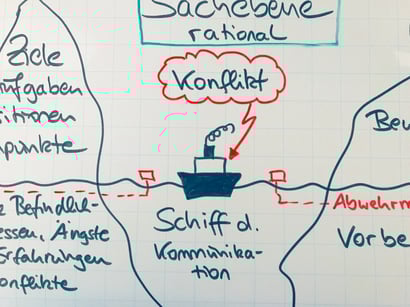 Sachebene
rational
Ziele
ufgaben
itionen
punkte
Konflikt
Bew
Befindlich-
essen, Ängste
Erfahrungen
onflikte
Schiff d.
Kommunika-
tion
Abwehrm
Vorbe